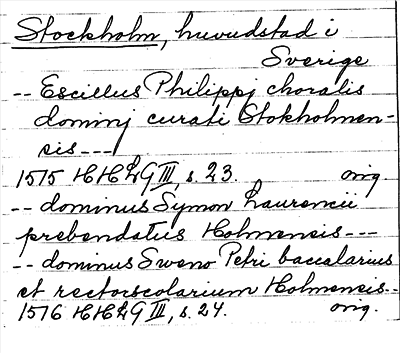 Stockholm, huvudstad i
Sverige
-- Escillus Philippj choralis
dominj curati Stokholmen-
sis ---
1575 HHLG III, s. 23. orig
-- dominus Symon Laurencii
prebendatus Holmensis ---
-- dominus Sweno Petri baccalarius
et rectorscolarium Holmensis--
1576 HHLG III, s. 24. orig.